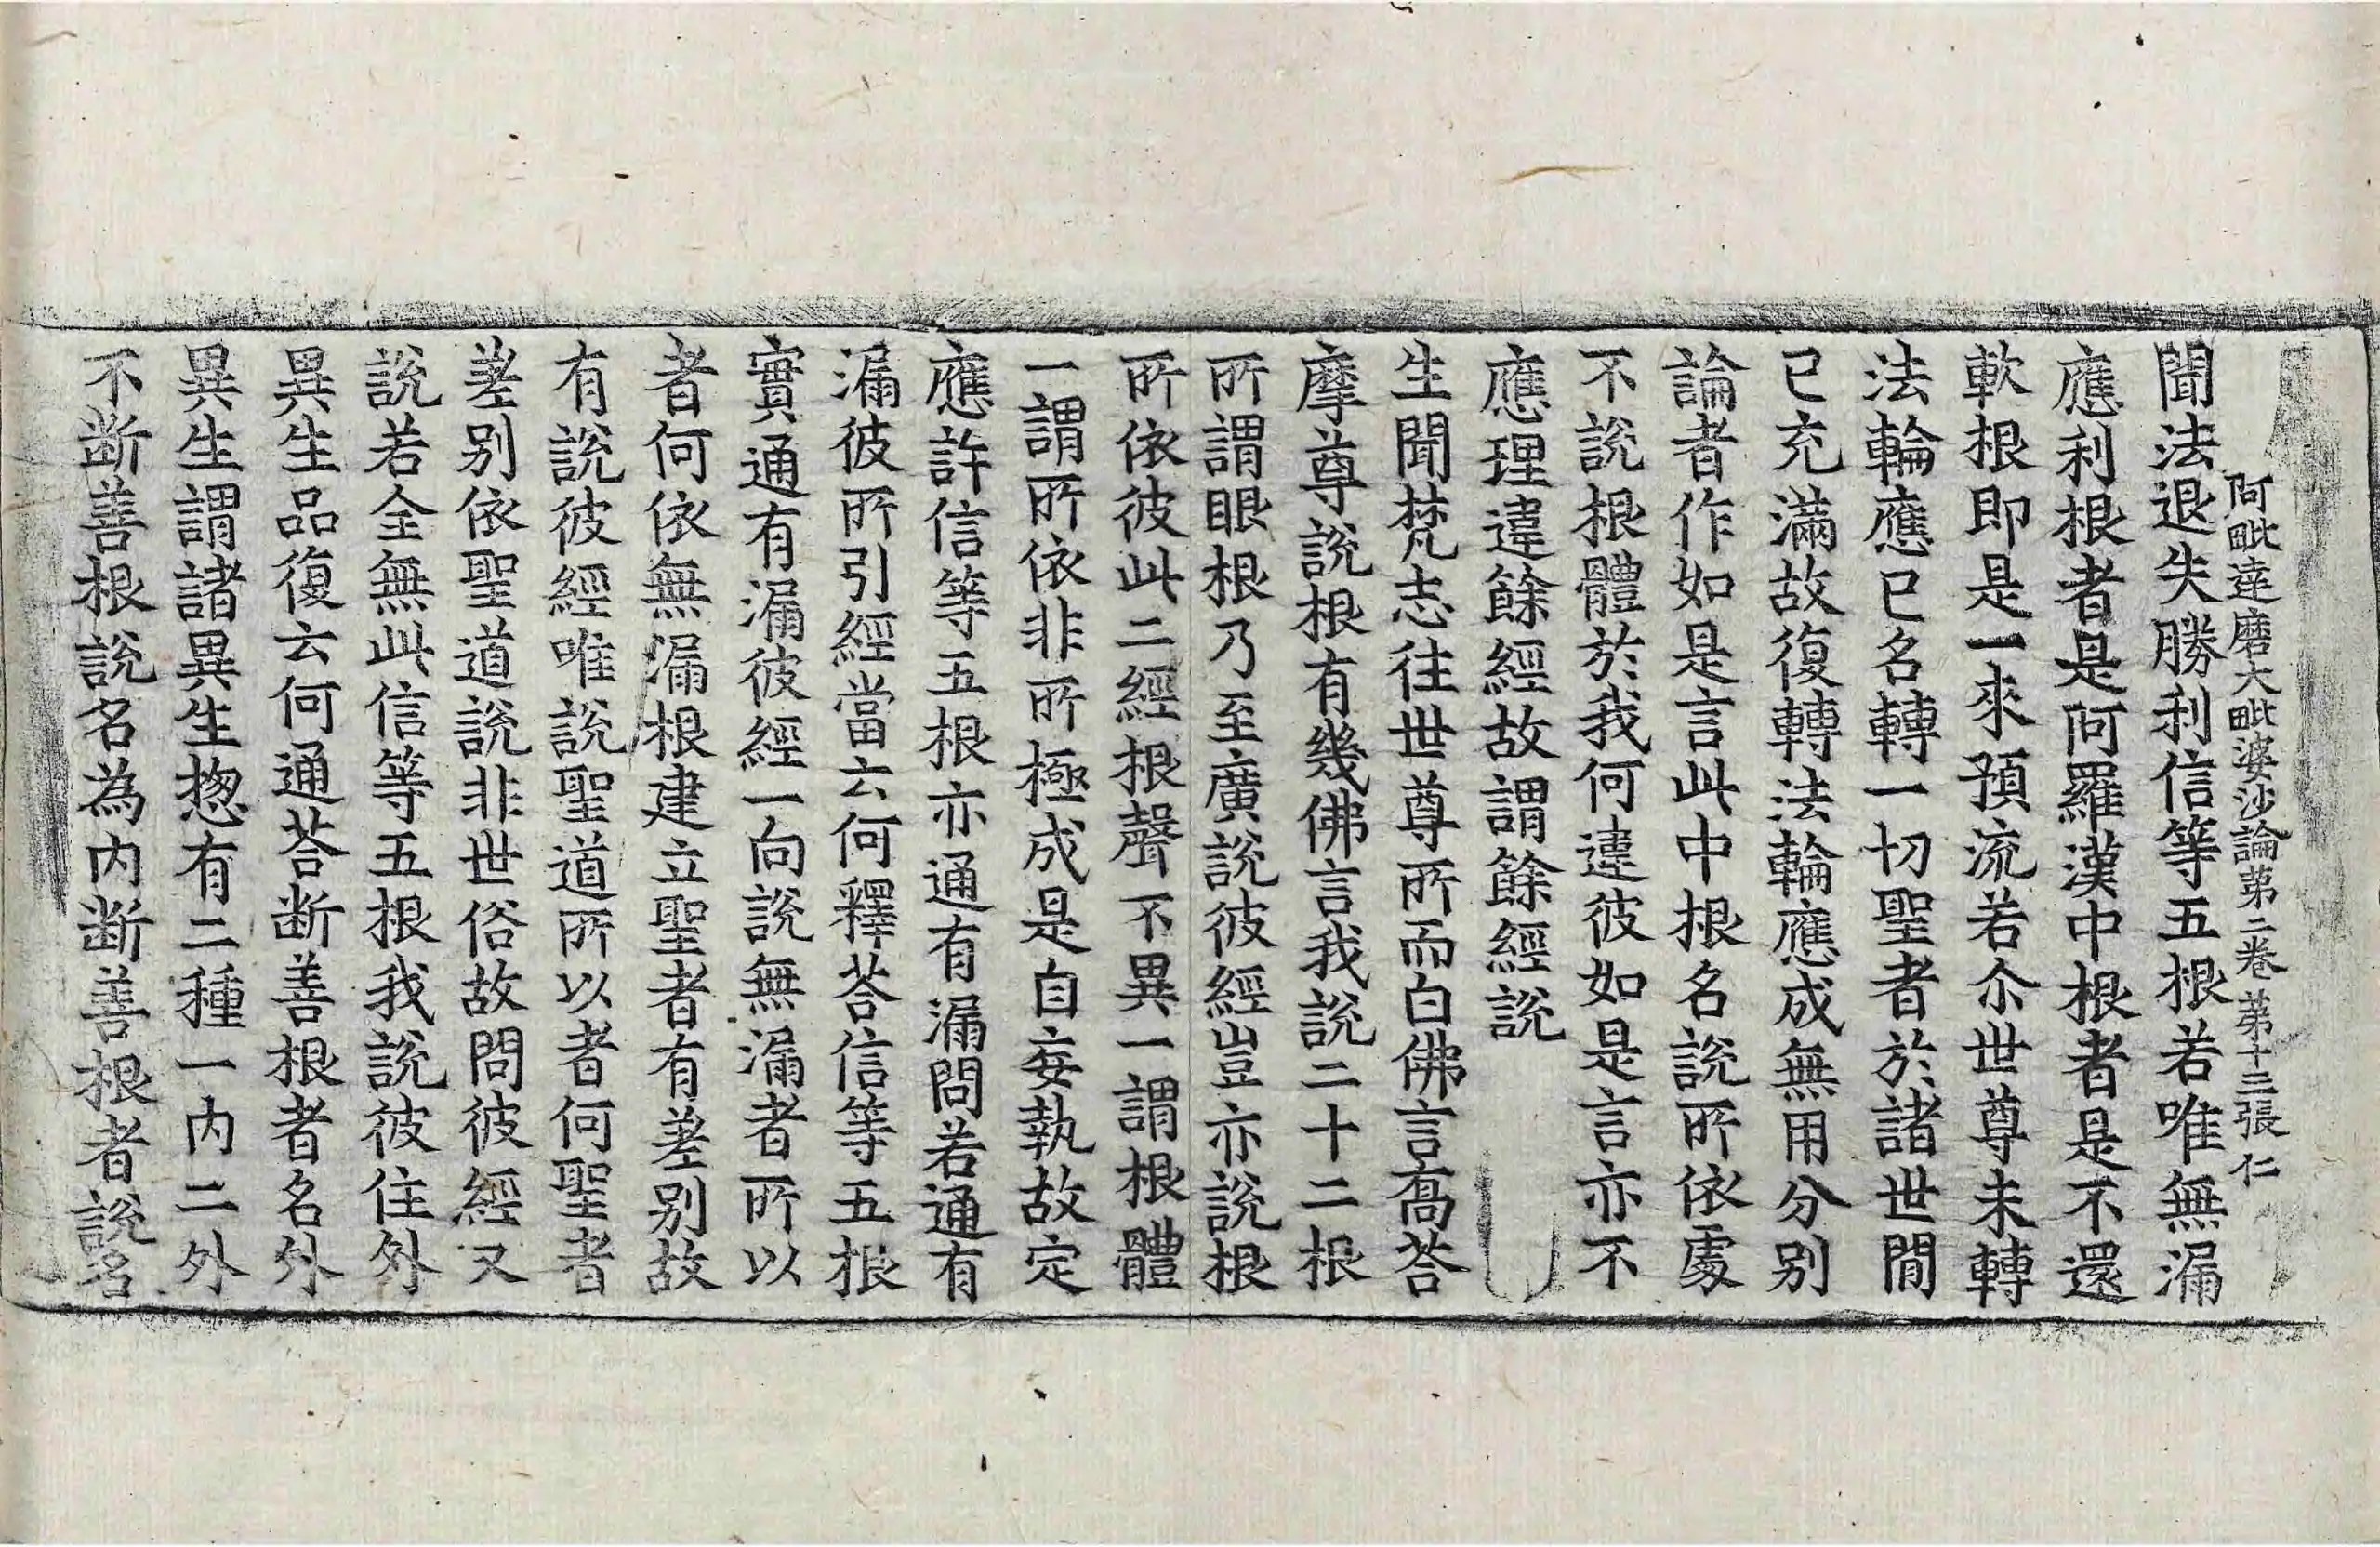 阿毗達磨大毗婆沙論苐二卷 苐十三張 仁
聞法退失勝利信等五根若唯無漏
應利根者是阿羅漢中根者是不還
軟根即是一來預流若尒世尊未轉
法輪應已名轉一切聖者於諸世間
已充滿故復轉法輪應成無用分別
論者作如是言此中根名說所依處
不說根體於我何違彼如是言亦不
應理違餘經故謂餘經說
生聞梵志往世尊所而白佛言喬荅
摩尊說根有幾佛言我說二十二根
所謂眼根乃至廣說彼經豈亦說根
所依彼此二經根聲不異一謂根體
一謂所依非所極成是自妄執故定
應許信等五根亦通有漏問若通有
漏彼所引經當云何釋荅信等五根
實通有漏彼經一向說無漏者所以
者何依無漏根建立聖者有差別故
有說彼經唯說聖道所以者何聖者
差別依聖道說非世俗故問彼經又
說若全無此信等五根我說彼住外
異生品復云何通荅断善根者名外
異生謂諸異生揔有二種一內二外
不断善根說名為內断善根者說名